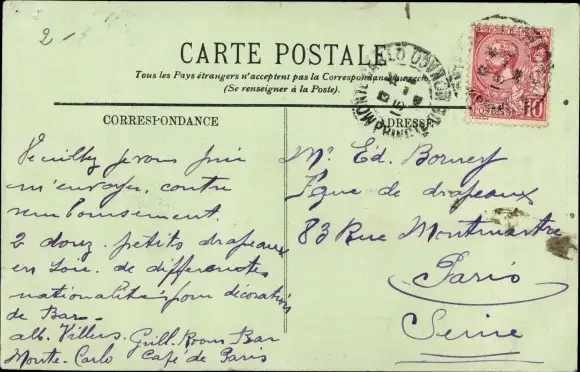 2-
CARTE POSTALE
Tous les Pays étrangers n'acceptent pas la Correspondance au recto
(Se renseigner à la Poste).
CORRESPONDANCE
ADRESSE
Veuillez je vous prie
m'envoyer contre
remboursement.
2 douz. petits drapeaux
en soie. de differentes
nationalités pour décoration
de Bar.
alb. Villers. Grill Room Bar
Monte-Carlo Café de Paris
Mr. Ed.
Fque de drapeaux
83 Rue Montmartre
Paris
Seine
MONTE-CARLO
10